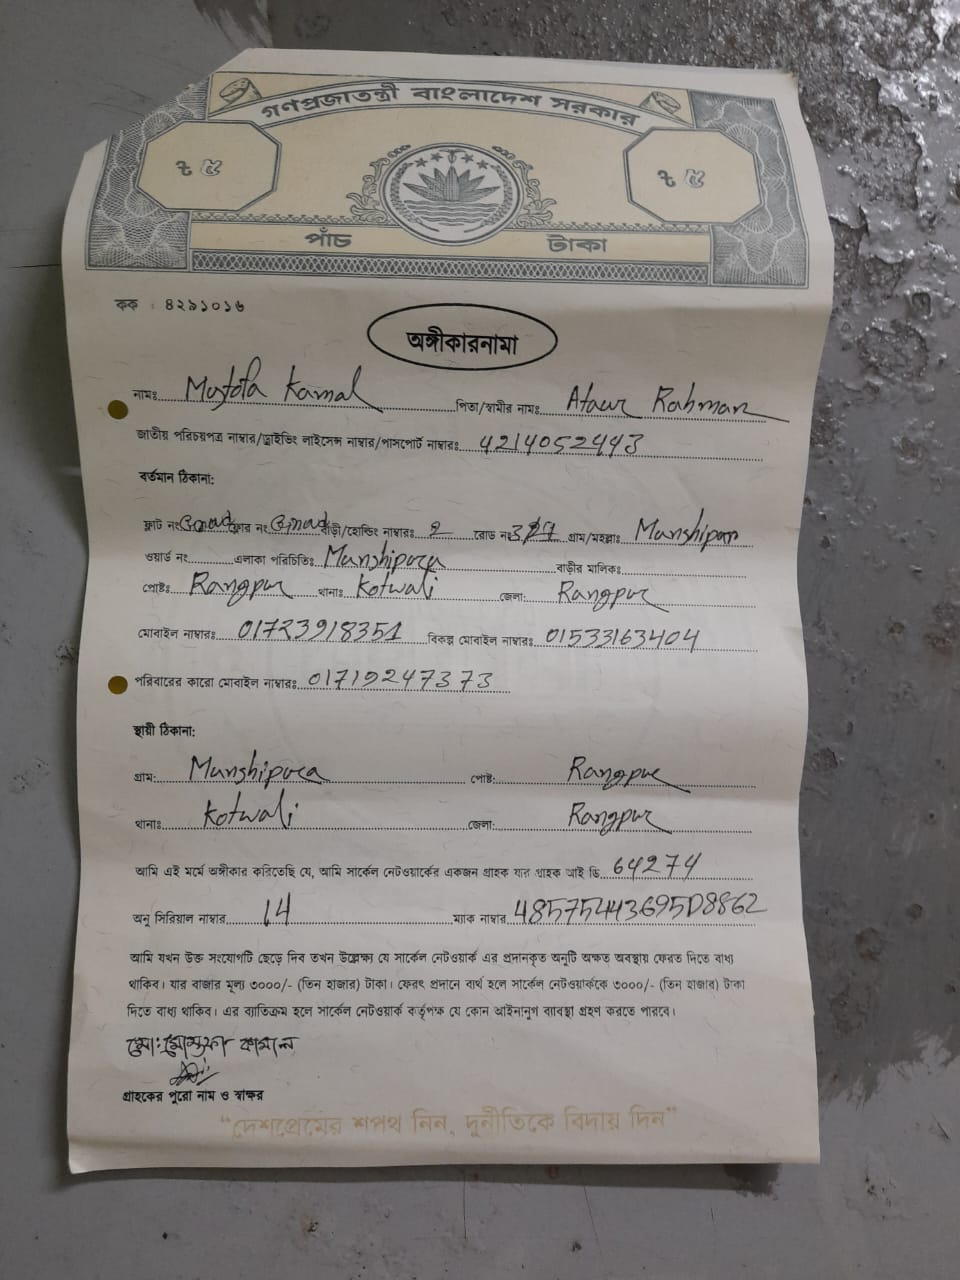 গণপ্রজাতন্ত্রী বাংলাদেশ সরকার
৳ ৫ ৳ ৫
পাঁচ টাকা
কক : ৪২৯১০১৬
অঙ্গীকারনামা
নামঃ Mostofa Kamal পিতা/স্বামীর নামঃ Ataur Rahman
জাতীয় পরিচয়পত্র নাম্বার/ড্রাইভিং লাইসেন্স নাম্বার/পাসপোর্ট নাম্বারঃ 4214052443
বর্তমান ঠিকানা:
ফ্লাট নং ফ্লোর নং বাড়ী/হোল্ডিং নাম্বারঃ 2 রোড নং গ্রাম/মহল্লাঃ Munshipara
ওয়ার্ড নং এলাকা পরিচিতিঃ Munshipara বাড়ীর মালিকঃ
পোষ্টঃ Rangpur থানাঃ Kotwali জেলা: Rangpur
মোবাইল নাম্বারঃ 01723918351 বিকল্প মোবাইল নাম্বারঃ 01533163404
পরিবারের কারো মোবাইল নাম্বারঃ 01719247373
স্থায়ী ঠিকানা:
গ্রাম: Munshipara পোষ্ট: Rangpur
থানাঃ Kotwali জেলা: Rangpur
আমি এই মর্মে অঙ্গীকার করিতেছি যে, আমি সার্কেল নেটওয়ার্কের একজন গ্রাহক যার গ্রাহক আই ডি 64274
অনু সিরিয়াল নাম্বার 14 ম্যাক নাম্বার 48575443695D8862
আমি যখন উক্ত সংযোগটি ছেড়ে দিব তখন উল্লেক্ষ্য যে সার্কেল নেটওয়ার্ক এর প্রদানকৃত অনুটি অক্ষত অবস্থায় ফেরত দিতে বাধ্য
থাকিব। যার বাজার মূল্য ৩০০০/- (তিন হাজার) টাকা। ফেরৎ প্রদানে ব্যর্থ হলে সার্কেল নেটওয়ার্ককে ৩০০০/- (তিন হাজার) টাকা
দিতে বাধ্য থাকিব। এর ব্যাতিক্রম হলে সার্কেল নেটওয়ার্ক কর্তৃপক্ষ যে কোন আইনানুগ ব্যাবস্থা গ্রহণ করতে পারবে।
মো: মোস্তফা কামাল
গ্রাহকের পুরো নাম ও স্বাক্ষর
“দেশপ্রেমের শপথ নিন, দুর্নীতিকে বিদায় দিন”